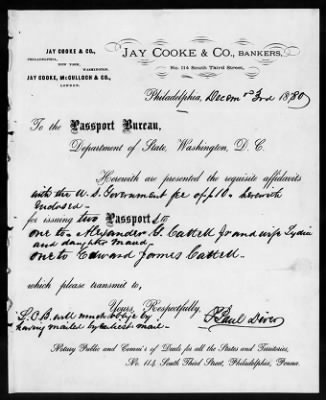 JAY COOKE & CO.,
PHILADELPHIA,
NEW YORK,
WASHINGTON.
JAY COOKE, McCULLOCH & CO.,
LONDON.
JAY COOKE & CO., BANKERS,
No. 114 South Third Street,
Philadelphia, Decem 3rd 1870
To the Passport Bureau,
Department of State, Washington, D. C.
Herewith are presented the requisite affidavits
with the U. S. Government fee of $10 - herewith
Inclosed -
for issuing two Passports to
one to Alexander G. Cattell Jr and wife Lydia
and daughter Maud,
one to Edward James Cattell
which please transmit to,
Yours, Respectfully,
will much oblige by
having mailed by mail -
Paul
Notary Public and Comm'r of Deeds for all the States and Territories,
No. 114 South Third Street, Philadelphia, Penna.